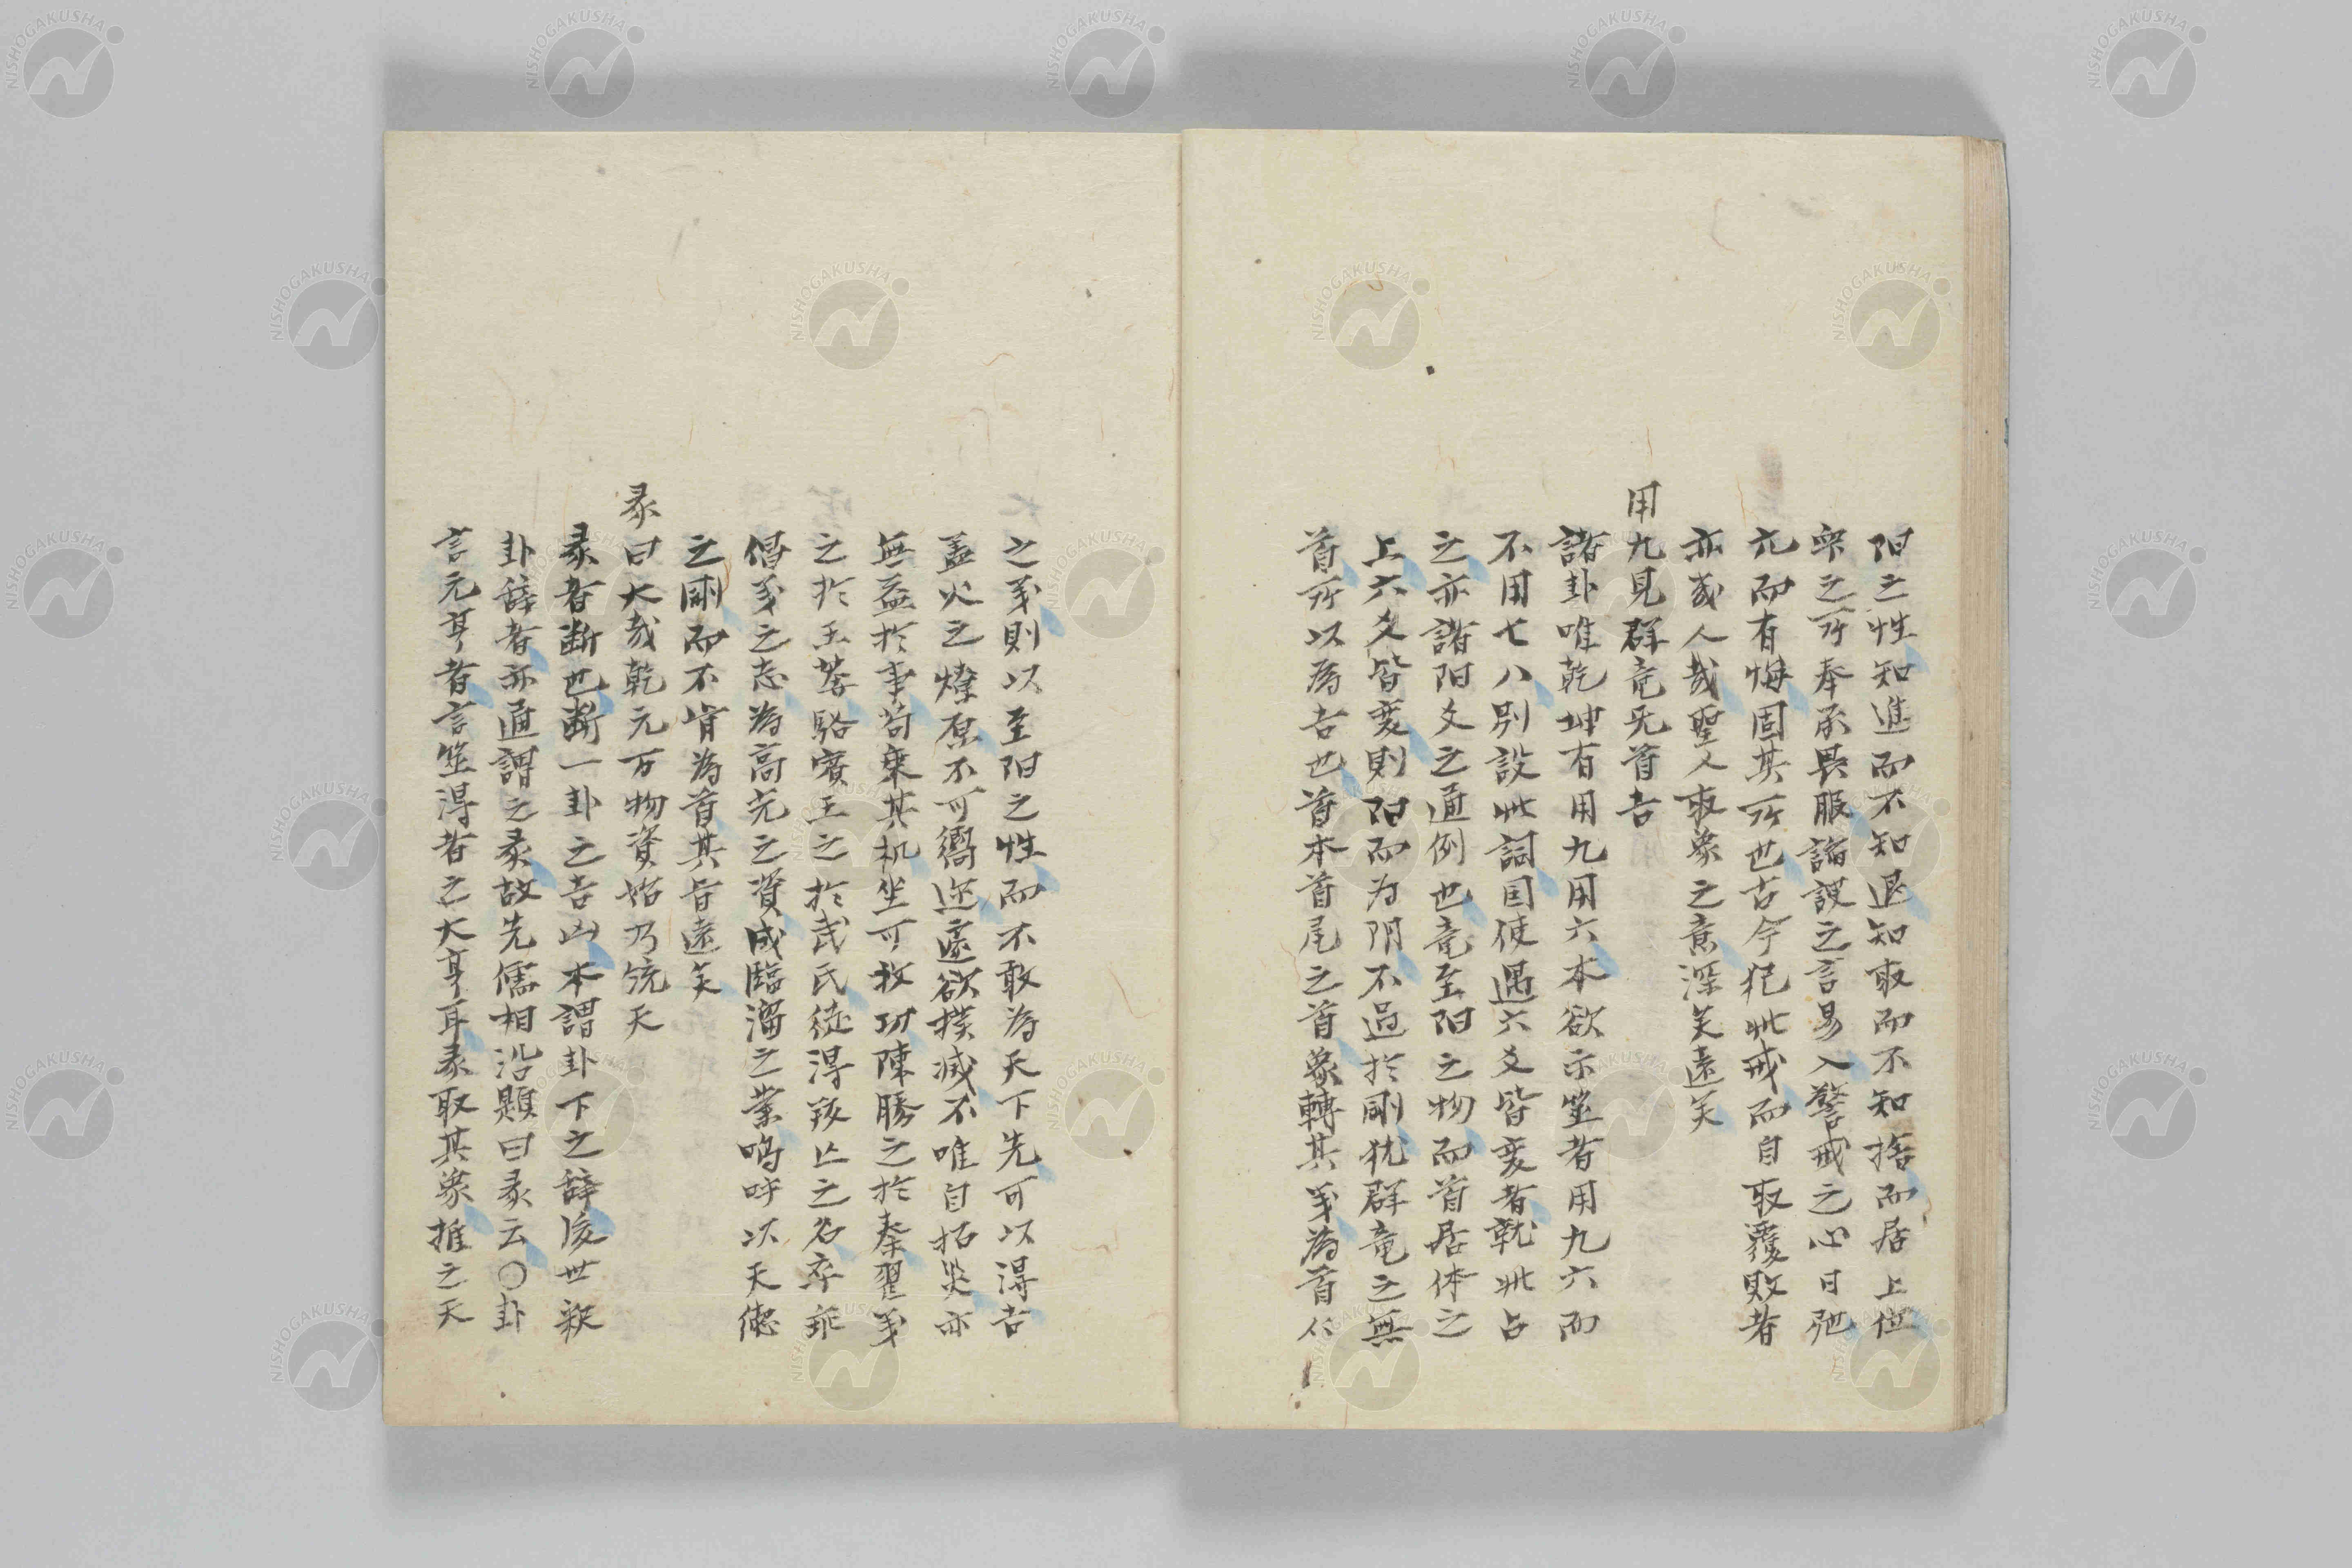 阳之性知進而不知退知取而不知捨而居上位
衆之所奉承畏服諂諛之言易入警戒之心日弛
亢而有悔固其所也古今犯此戒而自取覆敗者
亦幾人哉聖人取象之意深矣遠矣
用九見群竜无首吉
諸卦唯乾坤有用九用六本欲示筮者用九六而
不用七八別設此詞因使遇六爻皆変者就此占
之亦諸阳爻之通例也竜至阳之物而首居体之
上六爻皆変則阳而为阴不過於剛犹群竜之無
首所以為吉也首本首尾之首象轉其義為首人
之義則以至阳之性而不敢為天下先可以得吉
盖火之燎原不可嚮迩遽欲撲滅不唯自招災亦
無益於事苟乗其机坐可收功陳勝之於秦翟義
之於王莽駱賓王之於武氏徒得殘亡之名卒非
倡義之志為高光之資成臨淄之業嗚呼以天徳
之剛而不肯為首其旨遠矣
彖曰大哉乾元万物資始乃統天
彖者断也断一卦之吉凶本謂卦下之辞後世釈
卦辞者亦通謂之彖故先儒相沿題曰彖云〇卦
言元亨者言筮得者之大亨耳彖取其象推之天
NISHOGAKUSHA